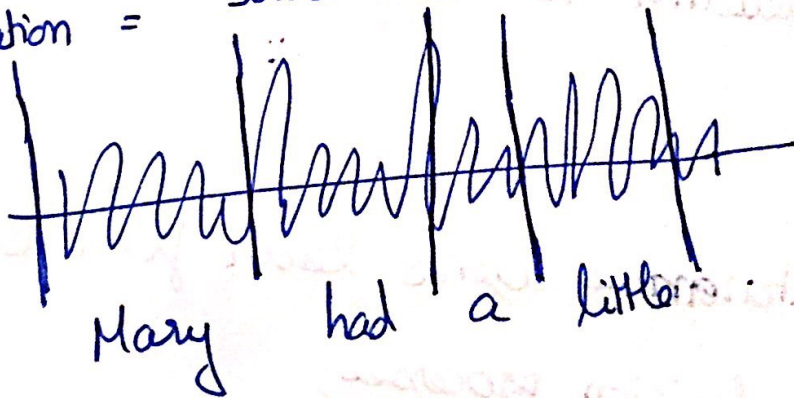 ation =
Mary had a little